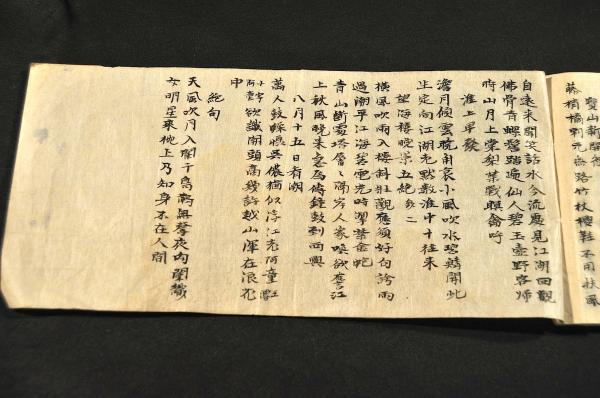 寶山新開徑
藤梢橘刺元無路竹杖椶鞋不用扶風
自遠來聞笑語水分流處見江湖回觀
佛骨青螺髻踏遍仙人碧玉壺野客歸
時山月上棠梨葉戰暝禽呼
淮上早發
澹月傾雲曉角哀小風吹水碧鱗開此
生定向江湖老默數淮中十往來
望海樓晚景五絕
橫風吹雨入樓斜壯觀應須好句誇雨
過潮平江海碧電光時掣紫金蛇
青山斷處塔層層隔岸人家喚欲譍江
上秋風晚來急為傳鍾鼓到西興
八月十五日看潮
萬人鼓噪慴吳儂猶似浮江老阿童
小字阿童欲識潮頭高幾許越山渾在浪花
中
絕句
天風吹月入闌干烏鵲無聲夜向闌織
女明星來枕上乃知身不在人間